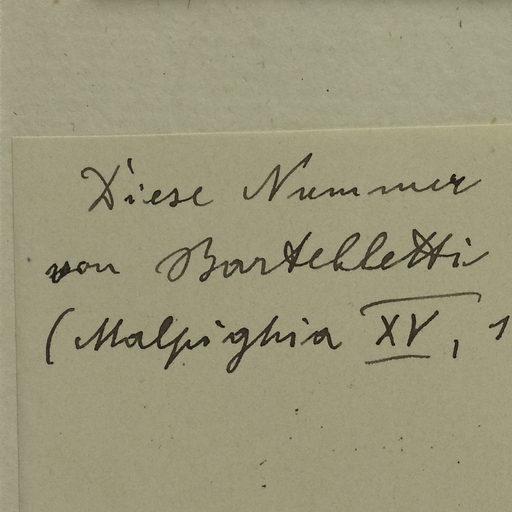 Diese Nummer
von Bartelletti
(Malpighia XV, 1